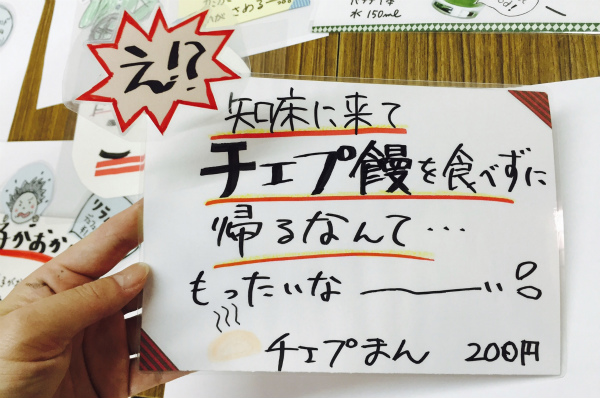 さわる
水150ml
え!?
知床に来て
チェプ饅を食べずに
帰るなんて…
もったいな――――い!
チェプまん 200円
かおか